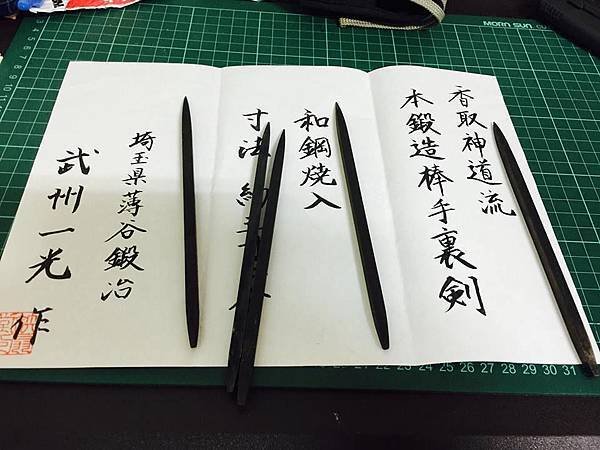 香取神道流
本鍛造棒手裏剣
和鋼焼入
寸法
埼玉県薄谷鍛冶
武州一光 作
MORN SUN
20 21 22 23 24 25 26 27 28 29 30 31